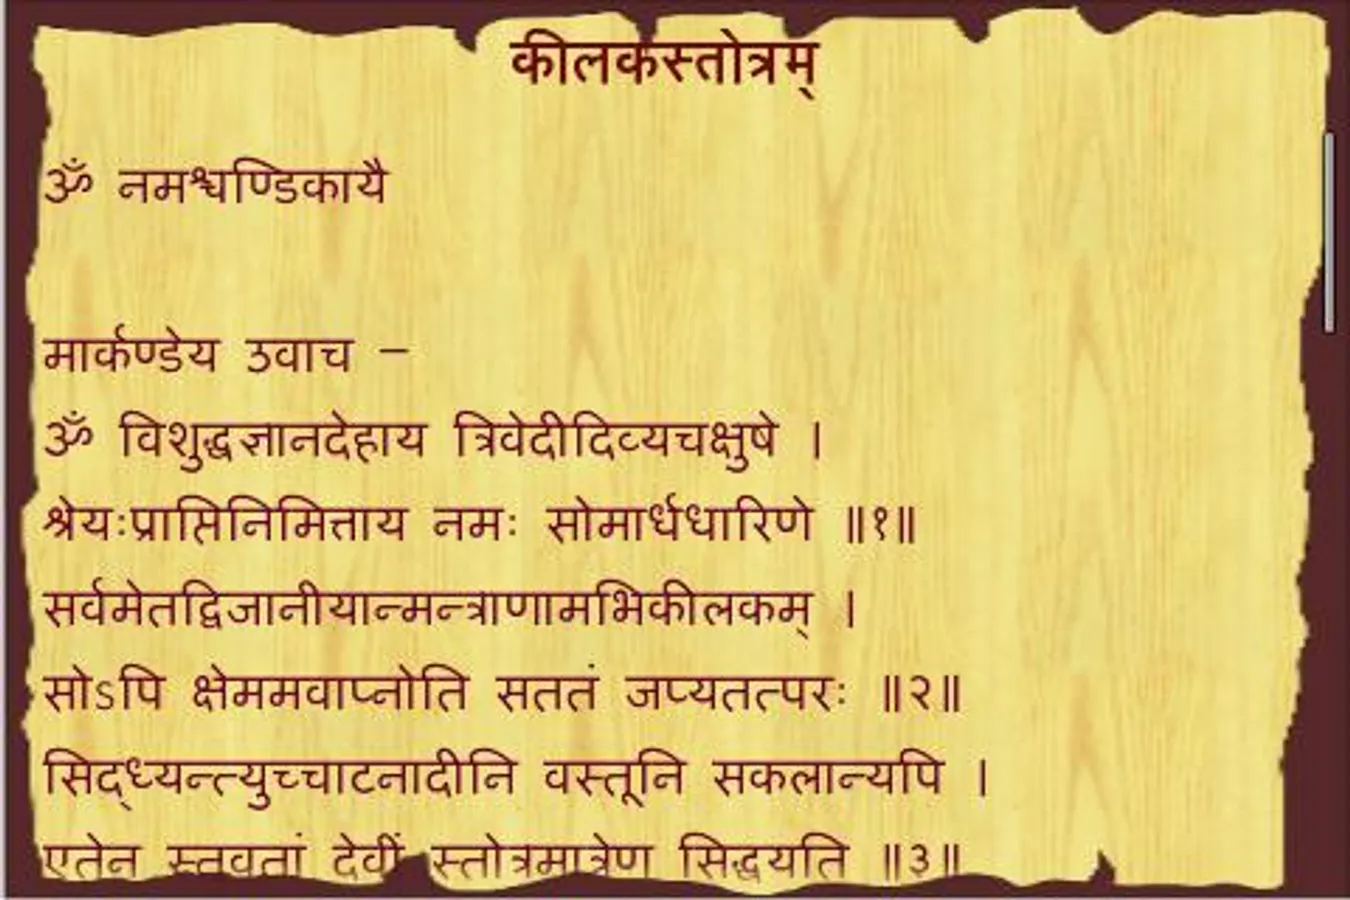 कीलकस्तोत्रम्
ॐ नमश्चण्डिकायै
मार्कण्डेय उवाच –
ॐ विशुद्धज्ञानदेहाय त्रिवेदीदिव्यचक्षुषे ।
श्रेयःप्राप्तिनिमित्ताय नमः सोमार्धधारिणे ॥१॥
सर्वमेतद्विजानीयान्मन्त्राणामभिकीलकम् ।
सोऽपि क्षेममवाप्नोति सततं जप्यतत्परः ॥२॥
सिद्ध्यन्त्युच्चाटनादीनि वस्तूनि सकलान्यपि ।
एतेन स्तुवतां देवीं स्तोत्रमात्रेण सिद्धयति ॥३॥